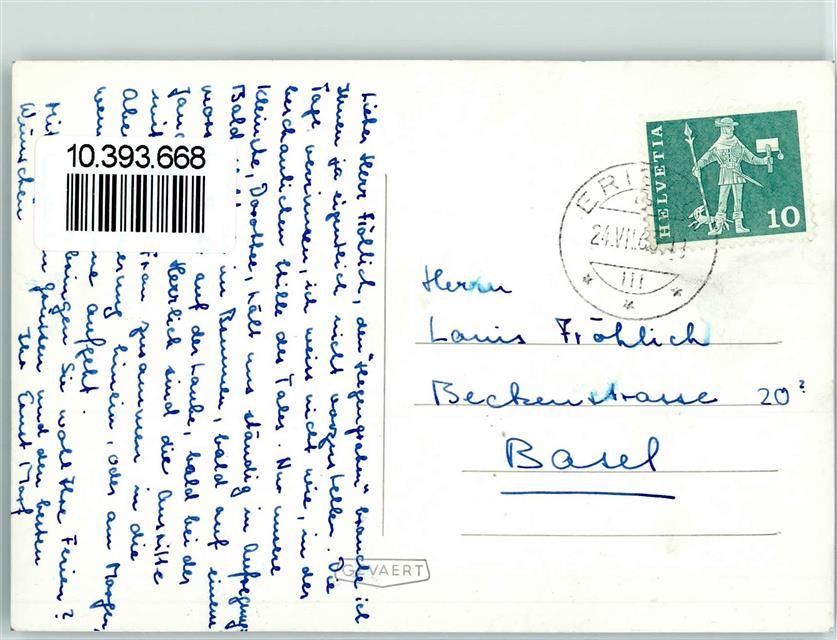 Lieber Herr Fröhlich, den "Hegengraben" brauche ich
Ihnen ja eigentlich nicht vorzustellen. Die
Tage verrinnen, ich weiss nicht wie, in der
beschaulichen Stille des Tales. Nur unsere
Kleinste, Dorothee, hält uns ständig in Aufregung:
Bald im Brunnen, bald auf einem
auf der Laube, bald bei der
Herrlich sind die Ausritte
mit Frau zusammen in die
hinein, oder am Morgen,
wenn aufgeht.
bringen Sie wohl Ihre Ferien?
Mit grüssen und den besten
Wünschen Ihr Ernst Morf
10.393.668
HELVETIA
10
24.VII.6
III
Herrn
Louis Fröhlich
Beckenstrasse 20?
Basel
GEVAERT